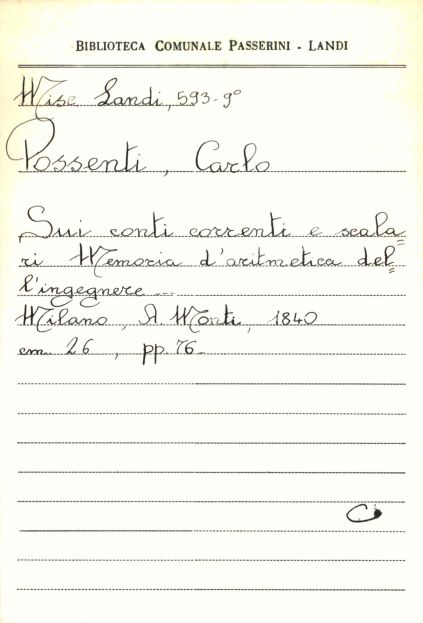 BIBLIOTECA COMUNALE PASSERINI - LANDI
Misc Landi, 593-9°
Possenti, Carlo
Sui conti correnti e scala=
ri Memoria d'aritmetica del=
l'ingegnere ...
Milano, A. Monti, 1840
cm. 26, pp. 76-